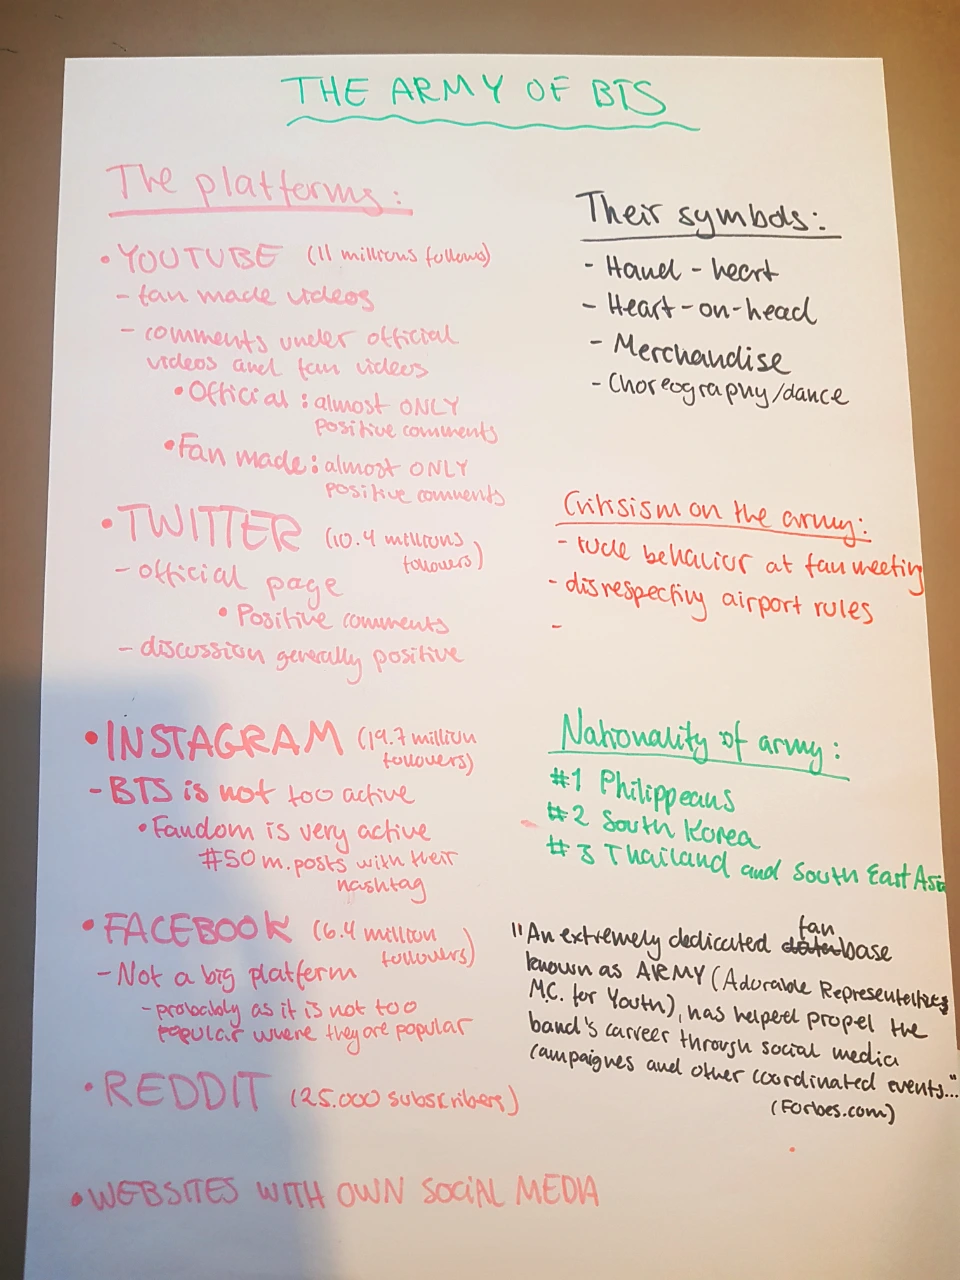 THE ARMY OF BTS
The platforms:
• YOUTUBE (11 millions follows)
- fan made videos
- comments under official
videos and fan videos
• Official: almost ONLY
positive comments
• Fan made: almost ONLY
positive comments
• TWITTER (10.4 millions
followers)
- official page
• Positive comments
- discussion generally positive
• INSTAGRAM (19.7 million
followers)
- BTS is not too active
• Fandom is very active
#50 m. posts with their
hashtag
• FACEBOOK (6.4 million
followers)
- Not a big platform
- probably as it is not too
popular where they are popular
• REDDIT (25.000 subscribers)
• WEBSITES WITH OWN SOCIAL MEDIA
Their symbols:
- Hand-heart
- Heart-on-head
- Merchandise
- Choreography/dance
Critisism on the army:
- rude behavior at fan meeting
- disrespecting airport rules
-
Nationality of army:
#1 Philippeans
#2 South Korea
#3 Thailand and South East Asia
"An extremely dedicated fan base
known as ARMY (Adorable Representatives
M.C. for Youth), has helped propel the
band's career through social media
campaignes and other coordinated events..."
(Forbes.com)